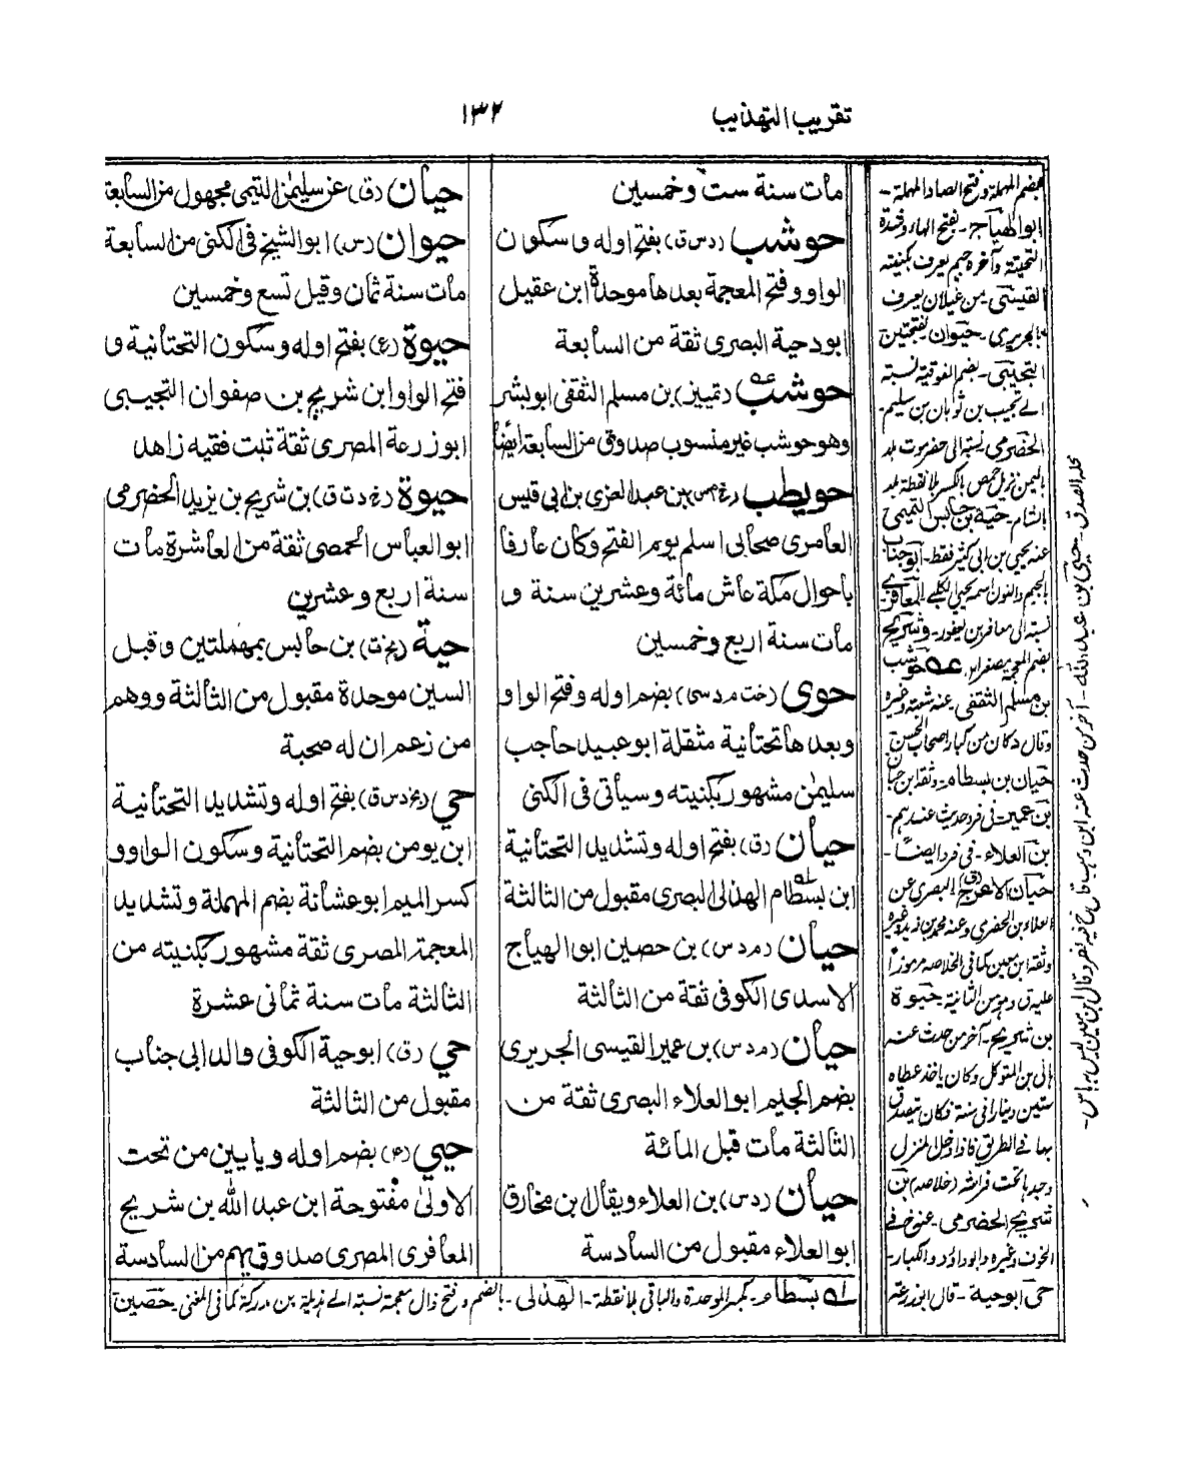 تقريب التهذيب
١٣٢
مات سنة ست وخمسين
حوشب (دس ق) بفتح اوله وسكون
الواو وفتح المعجمة بعدها موحدة ابن عقيل
ابودحية البصرى ثقة من السابعة
حوشب (تمييز) بن مسلم الثقفى ابوبشر
وهو حوشب غير منسوب صدوق من السابعة ايضا
حويطب (خ م س) بن عبد العزى بن ابى قيس
العامرى صحابى اسلم يوم الفتح وكان عارفا
باحوال مكة عاش مائة وعشرين سنة و
مات سنة اربع وخمسين
حوى (خت م د سى) بضم اوله وفتح الواو
وبعدها تحتانية مثقلة ابو عبيد حاجب
سليمن مشهور بكنيته وسيأتى فى الكنى
حيان (ق) بفتح اوله وتشديد التحتانية
ابن بسطام الهذلى البصرى مقبول من الثالثة
حيان (م د س) بن حصين ابو الهياج
الاسدى الكوفى ثقة من الثالثة
حيان (م د س) بن عمير القيسى الجريرى
بضم الجيم ابو العلاء البصرى ثقة من
الثالثة مات قبل المائة
حيان (د س) بن العلاء ويقال ابن مخارق
ابو العلاء مقبول من السادسة
حيان (ق) عن سليمن التيمى مجهول من السابعة
حيوان (د س) ابو الشيخ فى الكنى من السابعة
مات سنة ثمان وقيل تسع وخمسين
حيوة (ع) بفتح اوله وسكون التحتانية و
فتح الواو ابن شريح بن صفوان التجيبى
ابو زرعة المصرى ثقة ثبت فقيه زاهد
حيوة (خ د ت ق) بن شريح بن يزيد الحضرمى
ابو العباس الحمصى ثقة من العاشرة مات
سنة اربع وعشرين
حية (بخ ت) بن حابس بمهملتين وقبل
السين موحدة مقبول من الثالثة ووهم
من زعم ان له صحبة
حي (بخ د س ق) بفتح اوله وتشديد التحتانية
ابن يومن بضم التحتانية وسكون الواو و
كسر الميم ابو عشانة بضم المهملة وتشديد
المعجمة المصرى ثقة مشهور بكنيته من
الثالثة مات سنة ثمانى عشرة
حي (ق) ابوحية الكوفى والد ابى جناب
مقبول من الثالثة
حيي (٤) بضم اوله ويايين من تحت
الاولى مفتوحة ابن عبد الله بن شريح
المعافرى المصرى صدوق يهم من السادسة
بضم المهملة وفتح الصاد المهملة-
ابو الهياج- بفتح الهاء وشدة
التحتية وآخره جيم يعرف بكنيته
القيسى- من غيلان يعرف
بالجريرى- حيوان بفتحتين
التجيبى- بضم الفوقية نسبة
الى تجيب بن ثوبان بن سليم-
الحضرمى نسبة الى حضرموت بلد
باليمن نزيل حمص بالكسر بلا نقطة بلد
بالشام- حية بن حابس التميمى
عنه يحيى بن ابى كثير فقط- ابوجناب
بالجيم والنون اسمه يحيى الكلبى المعافرى
نسبة الى معافر بن يعفور- وشريح
بضم المعجمة مصغرا- عه حوشب
بن مسلم الثقفى- عنه شعبة وغيره
وقال كان من كبار اصحاب الحسن
حيان بن بسطام- وثقه ابن حبان
بن عمير- فى فرد حديث عندهم-
بن العلاء- فى فرد ايضا-
حيان الاعرج (ق) البصرى عن
العلاء بن الحضرمى وعنه محمد بن زيد وغيره
وثقه ابن معين كما فى الخلاصه مرموزا
عليه ق وهو من الثانية حيوة
بن شريح- آخر من حدث عنه
هانى بن المتوكل وكان ياخذ عطاه
ستين دينارا فى سنة فكان يتصدق
بها فى الطريق فاذا دخل المنزل
وجدها تحت فراشه (خلاصه) بن
شريح الحضرمى- عنه خ فى
الخوف وغيره وابوداؤد والكبار-
حى ابوحية- قال ابو زرعة
محله الصدق- حيى بن عبد الله- آخر من حدث عنه ابن وهب قال خ فيه نظر وقال ابن معين ليس به باس-
له بسطام- بكسر الموحدة والباقى بلا نقطة- الهذلى- بالضم وفتح ذال معجمة نسبة الى هذيلة بن مدركة كما فى المغنى- حصين